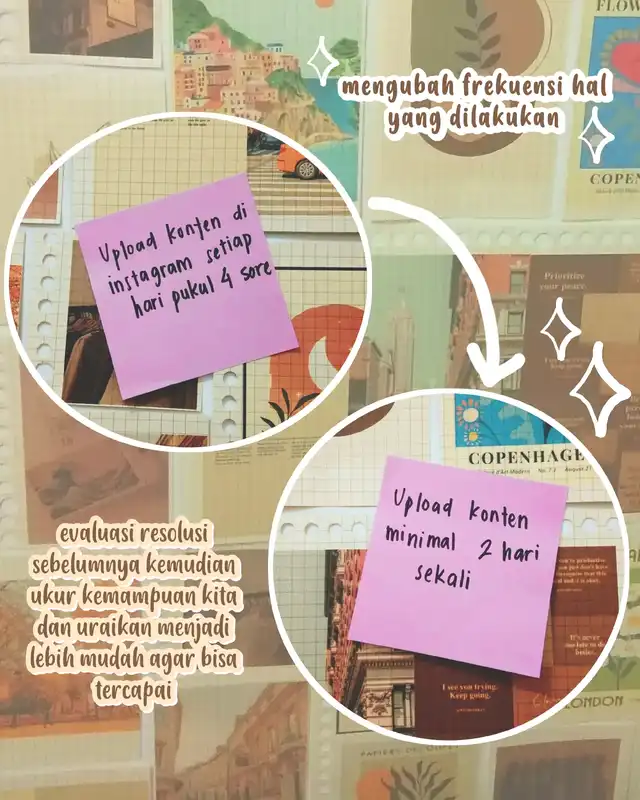 mengubah frekuensi hal
yang dilakukan
Upload konten di
instagram setiap
hari pukul 4 sore
Upload konten
minimal 2 hari
sekali
evaluasi resolusi
sebelumnya kemudian
ukur kemampuan kita
dan uraikan menjadi
lebih mudah agar bisa
tercapai
FLOW
COPEN
Prioritize
your peace.
COPENHAGE
It's never
too late to do
better.
I see you trying.
Keep going.
LONDON